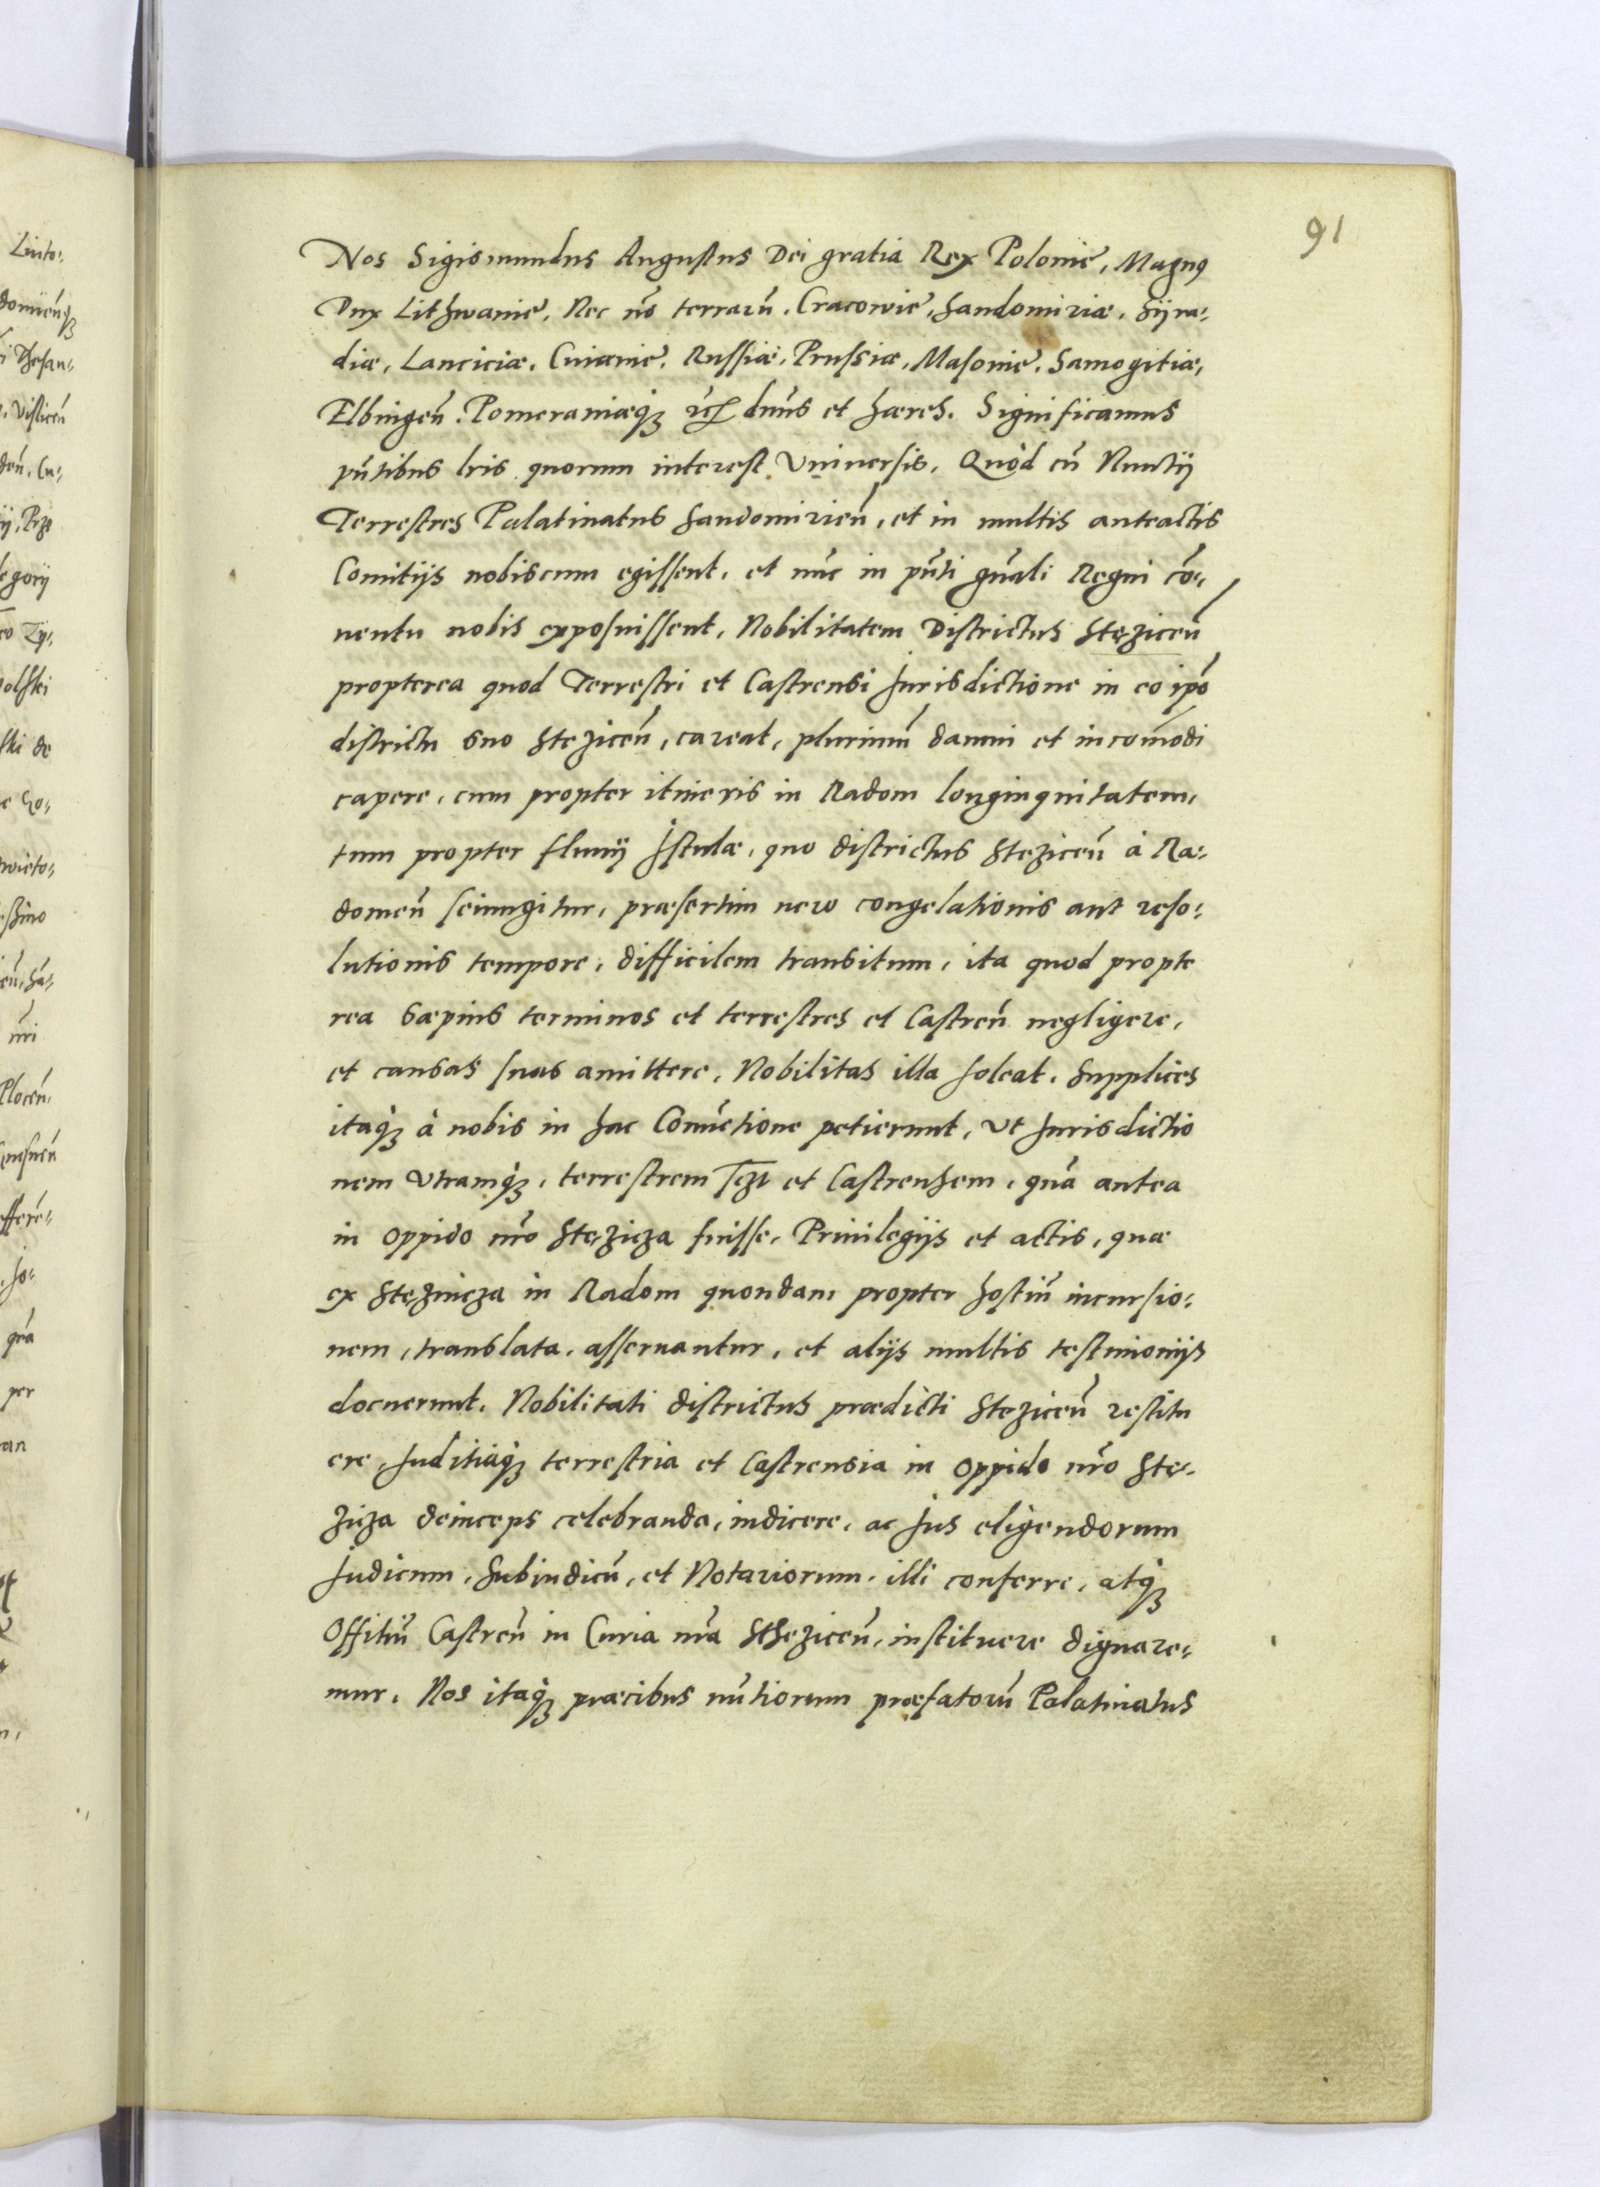 91
Nos Sigismundus Augustus Dei gratia Rex Polonię, Magnus
Dux Lithwanię, Nec nõ terrarũ, Cracowię, Sandomiriæ, Siira-
diæ, Lanciciæ, Cuiavię, Russiæ, Prussiæ, Masovię, Samogitiæ,
Elbingeñ. Pomeraniæq₃ etc. dnũs et hæres. Significamus
pñtibus lris quorum interest Universis, Quòd cũ Nuntij
Terrestres Palatinatus Sandomirieñ, et in multis anteactis
Comitijs nobiscum egissent, et nũc in pñti gñali Regni cõ-
uentu nobis exposuissent, Nobilitatem Districtus Stęziceñ
propterea quod Terrestri et Castrensi Jurisdictione in eo ipõ
districtu suo Stęziceñ, careat, plurimũ damni et incom̃odi
capere, cum propter itineris in Radom longinquitatem,
tum propter fluuij Istulæ, quo districtus Stęziceñ à Ra-
domeñ seiungitur, præsertim uero congelationis aut reso-
lutionis tempore, difficilem transitum, ita quod propte
rea sæpius terminos et terrestres et Castreñ negligere,
et causas suas amittere, Nobilitas illa soleat. Supplices
itaq₃ à nobis in hac Conuẽtione petierunt, Ut Jurisdictio
nem Utramq₃, terrestrem sczt et Castrensem, quã antea
in oppido nrõ Stęzicza fuisse, Priuilegijs et actis, quæ
ex Stęzincza in Radom quondam propter hostiũ incursio-
nem, translata, asseruantur, et alijs multis testimonijs
docuerunt. Nobilitati districtus prædicti Stęziceñ restitu
ere, Juditiaq₃ terrestria et Castrensia in oppido nrõ Stę-
zicza deinceps celebranda, indicere, ac Jus eligendorum
Judicum, Subiudicũ, et Notariorum, illi conferre, atq₃
Offitiũ Castreñ in Curia nrã Sthęziceñ, instituere dignare-
mur. Nos itaq₃ præcibus nũtiorum præfatorũ Palatinatus